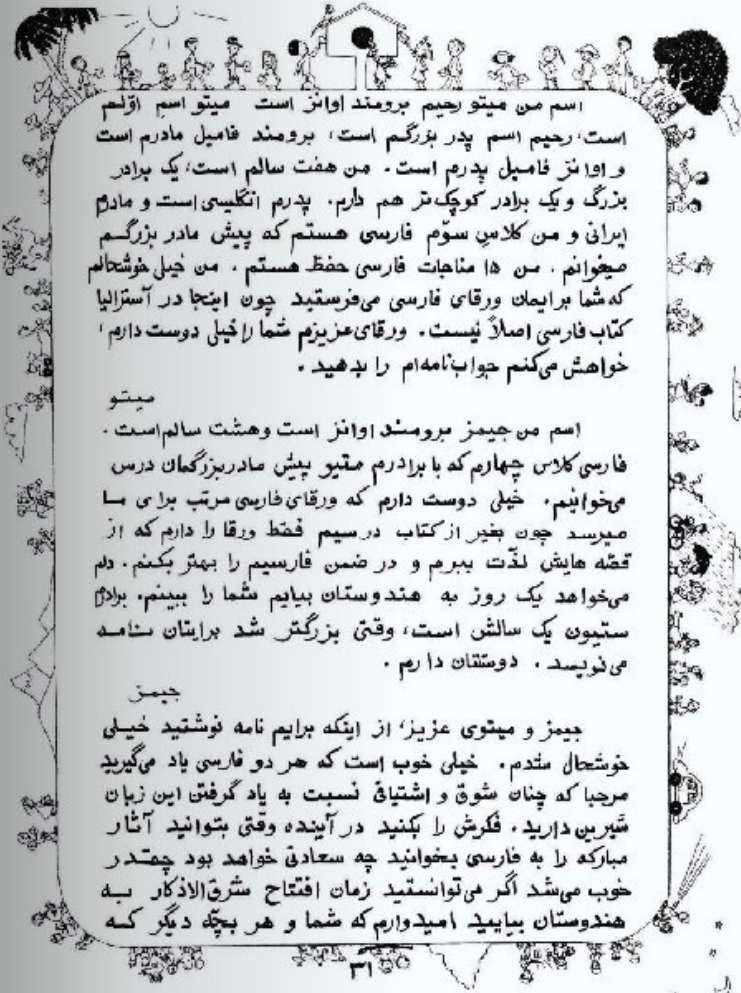 اسم من میتو رحیم برومند اوانز است میتو اسم اوّلم
است، رحیم اسم پدر بزرگم است، برومند فامیل مادرم است
و اوانز فامیل پدرم است. من هفت سالم است، یک برادر
بزرگ و یک برادر کوچک‌تر هم دارم. پدرم انگلیسی است و مادرم
ایرانی و من کلاس سوّم فارسی هستم که پیش مادر بزرگم
میخوانم. من ۱۵ مناجات فارسی حفظ هستم. من خیلی خوشحالم
که شما برایمان ورقای فارسی می‌فرستید چون اینجا در آسترالیا
کتاب فارسی اصلاً نیست. ورقای عزیزم شما را خیلی دوست دارم،
خواهش می‌کنم جواب نامه‌ام را بدهید.
میتو
اسم من جیمز برومند اوانز است و هشت سالم است.
فارسی کلاس چهارم که با برادرم متیو پیش مادر بزرگمان درس
می‌خوانیم. خیلی دوست دارم که ورقای فارسی مرتب برای ما
میرسد چون بغیر از کتاب درسیم فقط ورقا را دارم که از
قصّه هایش لذّت ببرم و در ضمن فارسیم را بهتر بکنم. دلم
می‌خواهد یک روز به هندوستان بیایم شما را ببینم. برادرم
ستیون یک سالش است، وقتی بزرگتر شد برایتان نامه
می‌نویسد. دوستتان دارم.
جیمز
جیمز و میتوی عزیز، از اینکه برایم نامه نوشتید خیلی
خوشحال شدم. خیلی خوب است که هر دو فارسی یاد می‌گیرید
مرحبا که چنان شوق و اشتیاقی نسبت به یاد گرفتن این زبان
شیرین دارید. فکرش را بکنید در آینده وقتی بتوانید آثار
مبارکه را به فارسی بخوانید چه سعادتی خواهد بود چقدر
خوب می‌شد اگر می‌توانستید زمان افتتاح مشرق‌الاذکار به
هندوستان بیایید امیدوارم که شما و هر بچّه دیگر که
۳۱